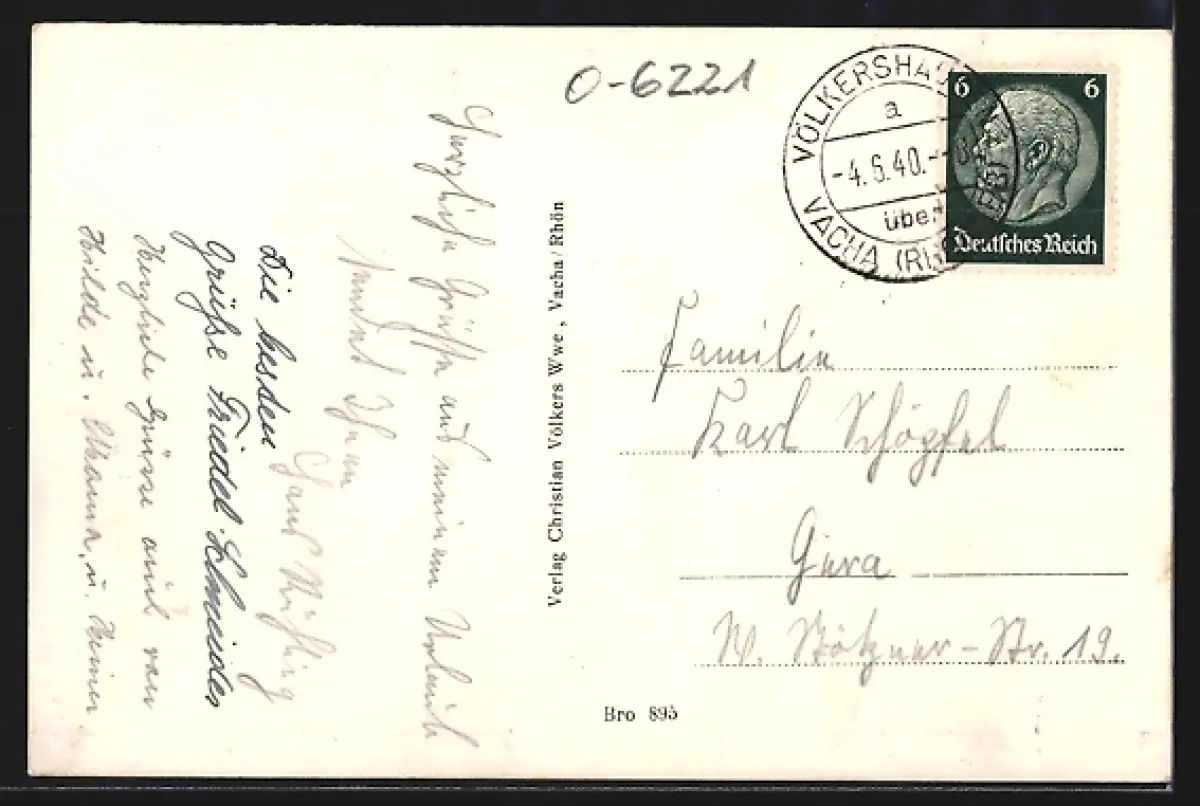 O-6221
VÖLKERSHAU
a
-4.6.40.-
über
VACHA (Rh
6 6
Deutsches Reich
Herzliche Grüße aus meinem Urlaub
sendet Ihnen
Hans
Die besten
Grüße Friedel Schneider
Herzliche Grüsse auch von
Hilde u. Mama, u. Heiner
Verlag Christian Völkers Wwe., Vacha/Rhön
Familie
Karl Schöpfel
Gera
W. Stötzner-Str. 19.
Bro 895